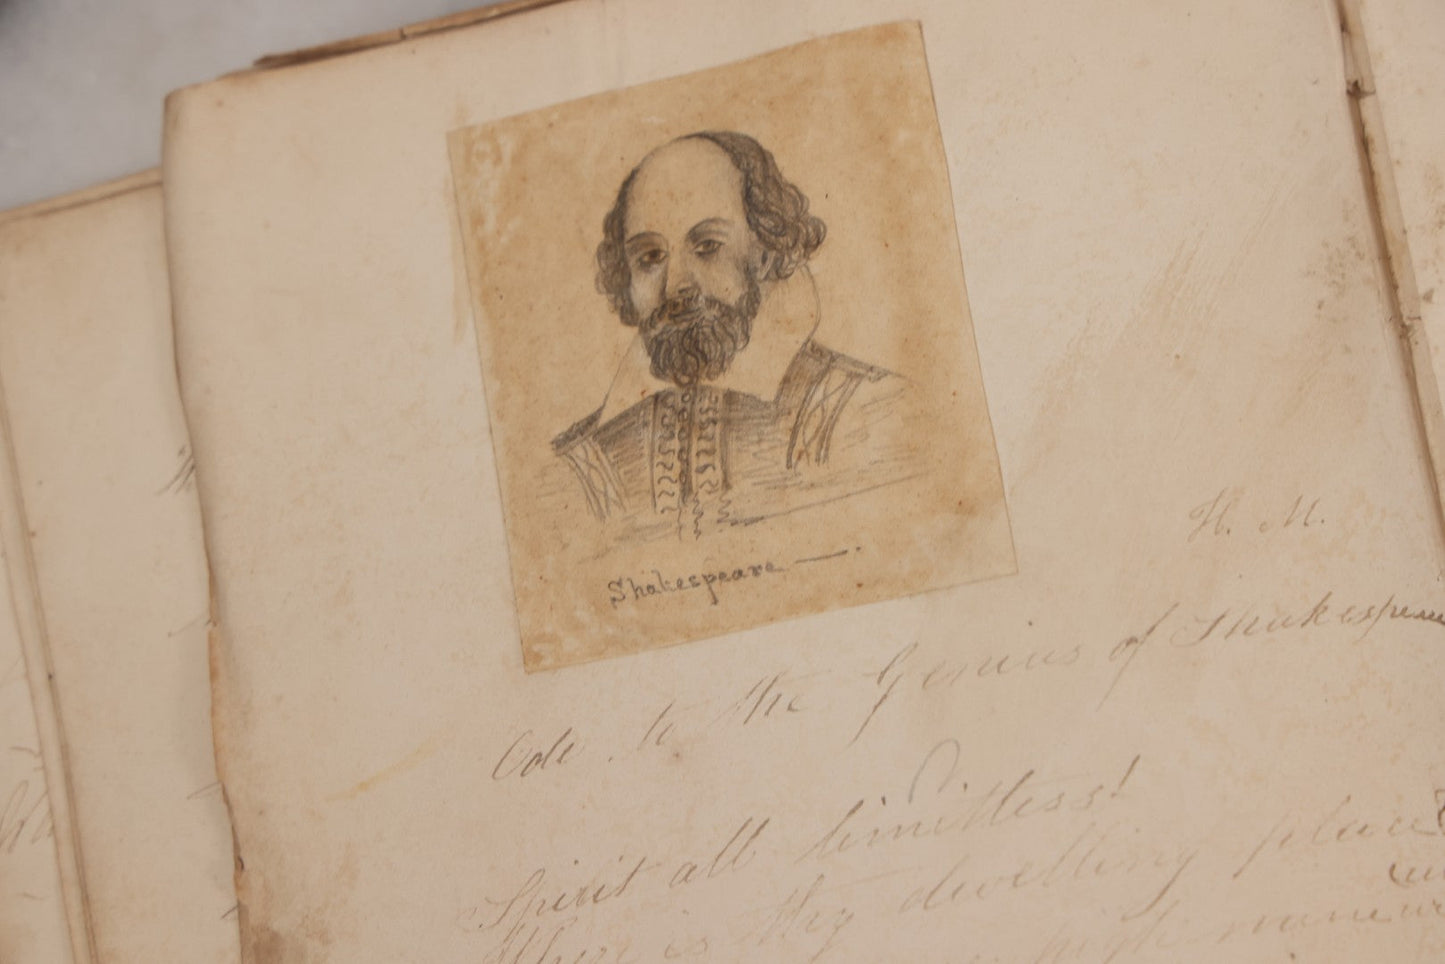 Shakespeare —.
H. M.
Ode to the Genius of Shakespeare
Spirit all limitless!
Where is thy dwelling place?
high